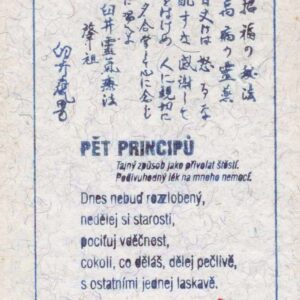 招福の秘法
萬病の靈薬
日丈けは 怒るな
配すな 感謝して
をはげめ 人に親切に
夕合掌して心に念じ
臼井靈氣療法
肇祖
臼井甕男
PĚT PRINCIPŮ
Tajný způsob jako přivolat štěstí.
Podivuhodný lék na mnoho nemocí.
Dnes nebuď rozzlobený,
nedělej si starosti,
pociťuj vděčnost,
cokoli, co děláš, dělej pečlivě,
s ostatními jednej laskavě.